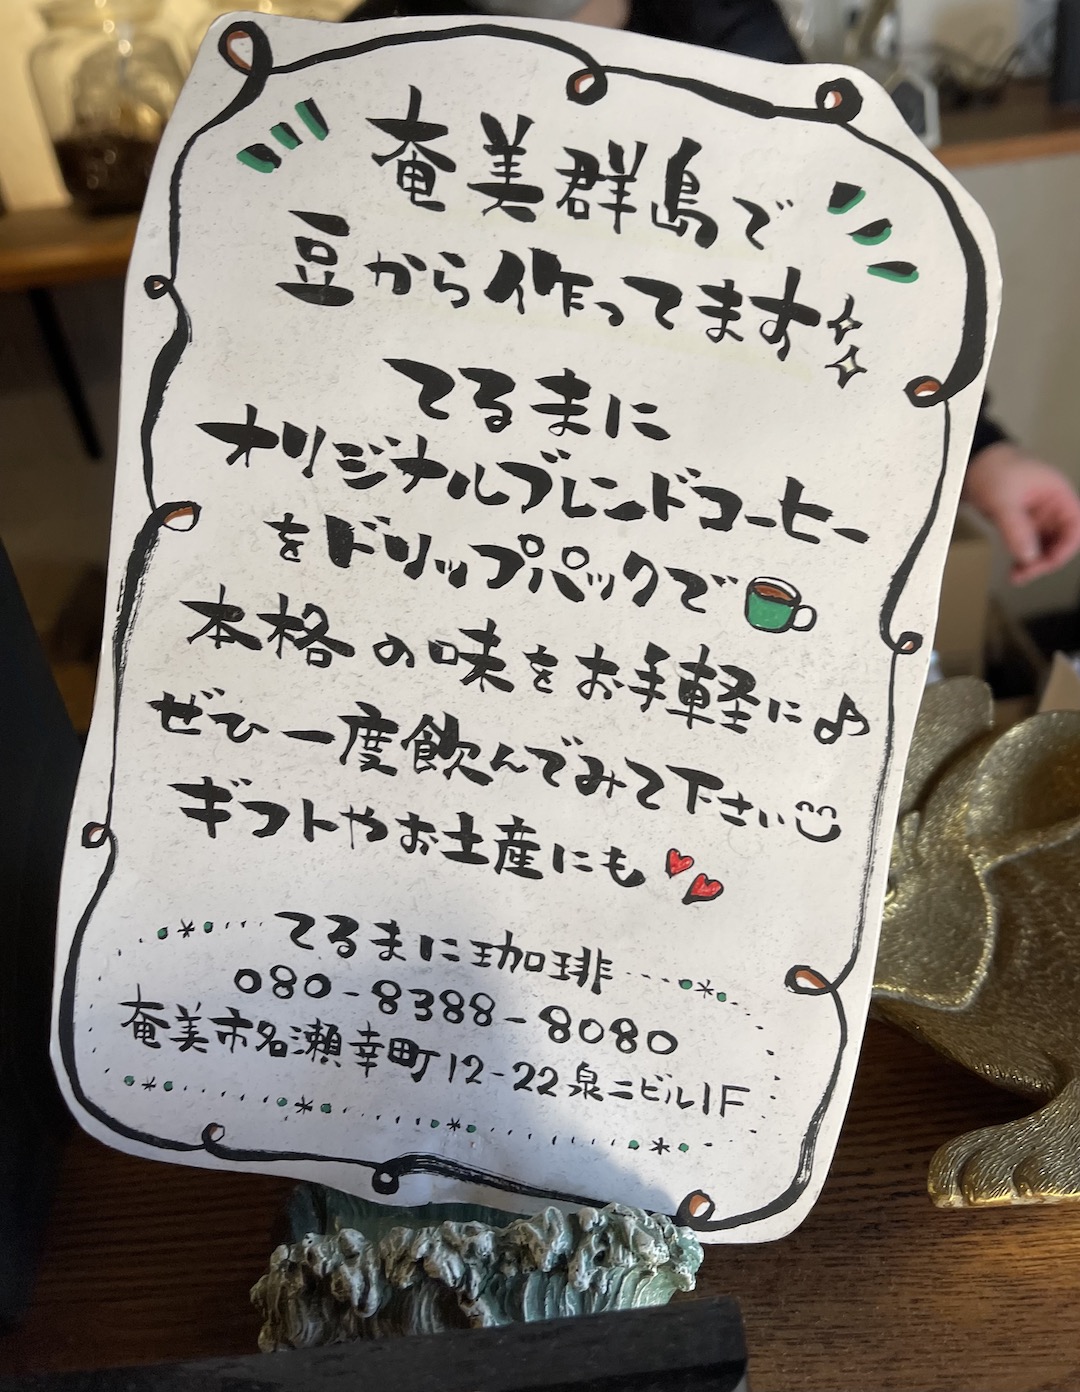 奄美群島で
豆から作ってます
てるまに
オリジナルブレンドコーヒー
をドリップパックで
本格の味をお手軽に♪
ぜひ一度飲んでみて下さい
ギフトやお土産にも
てるまに珈琲
080-8388-8080
奄美市名瀬幸町12-22泉二ビル1F